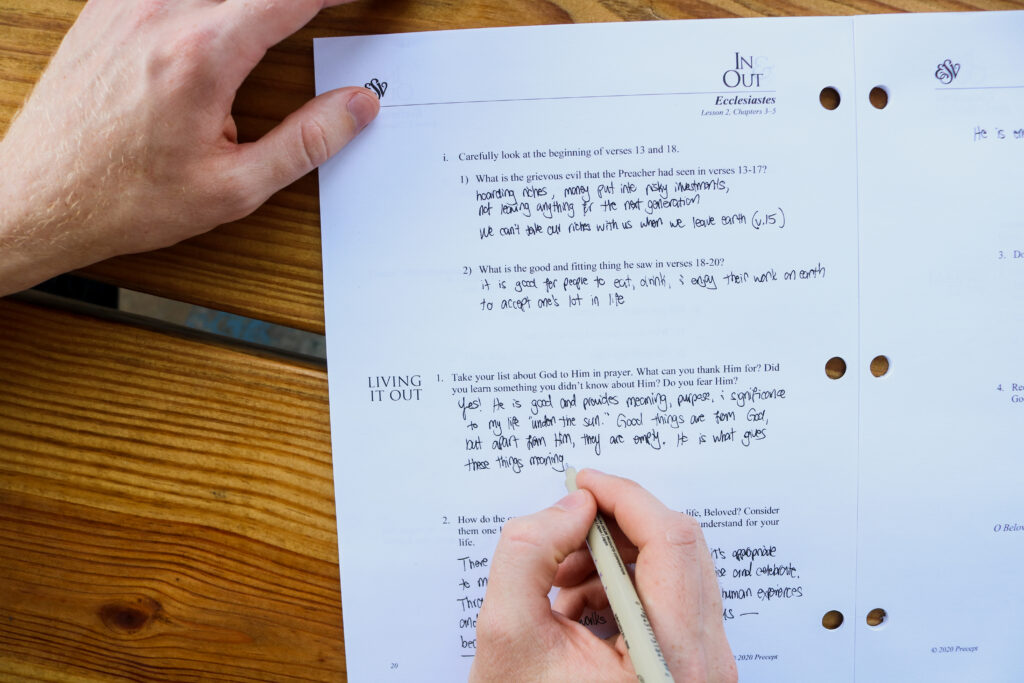 IN &
OUT
Ecclesiastes
Lesson 2, Chapters 3–5
i. Carefully look at the beginning of verses 13 and 18.
1) What is the grievous evil that the Preacher had seen in verses 13-17?
hoarding riches, money put into risky investments,
not leaving anything for the next generation
We can't take our riches with us when we leave earth (v.15)
2) What is the good and fitting thing he saw in verses 18-20?
it is good for people to eat, drink, & enjoy their work on earth
to accept one's lot in life
LIVING
IT OUT
1. Take your list about God to Him in prayer. What can you thank Him for? Did
you learn something you didn't know about Him? Do you fear Him?
Yes! He is good and provides meaning, purpose, & significance
to my life "under the sun." Good things are from God,
but apart from Him, they are empty. He is what gives
these things meaning.
2. How do the life, Beloved? Consider
them one understand for your
life.
There it's appropriate
to and celebrate.
human experiences
and works
20
© 2020 Precept
He is
3.
4.
O Belov
© 2020 Precept